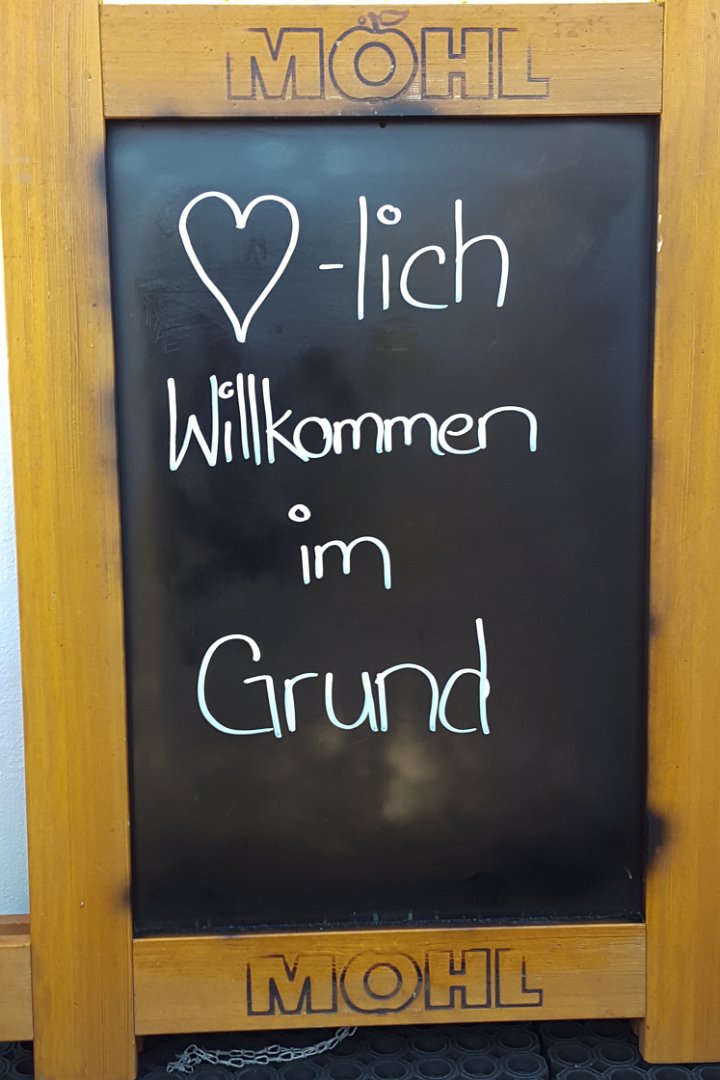 MÖHL
♡-lich
Willkommen
im
Grund
MOHL